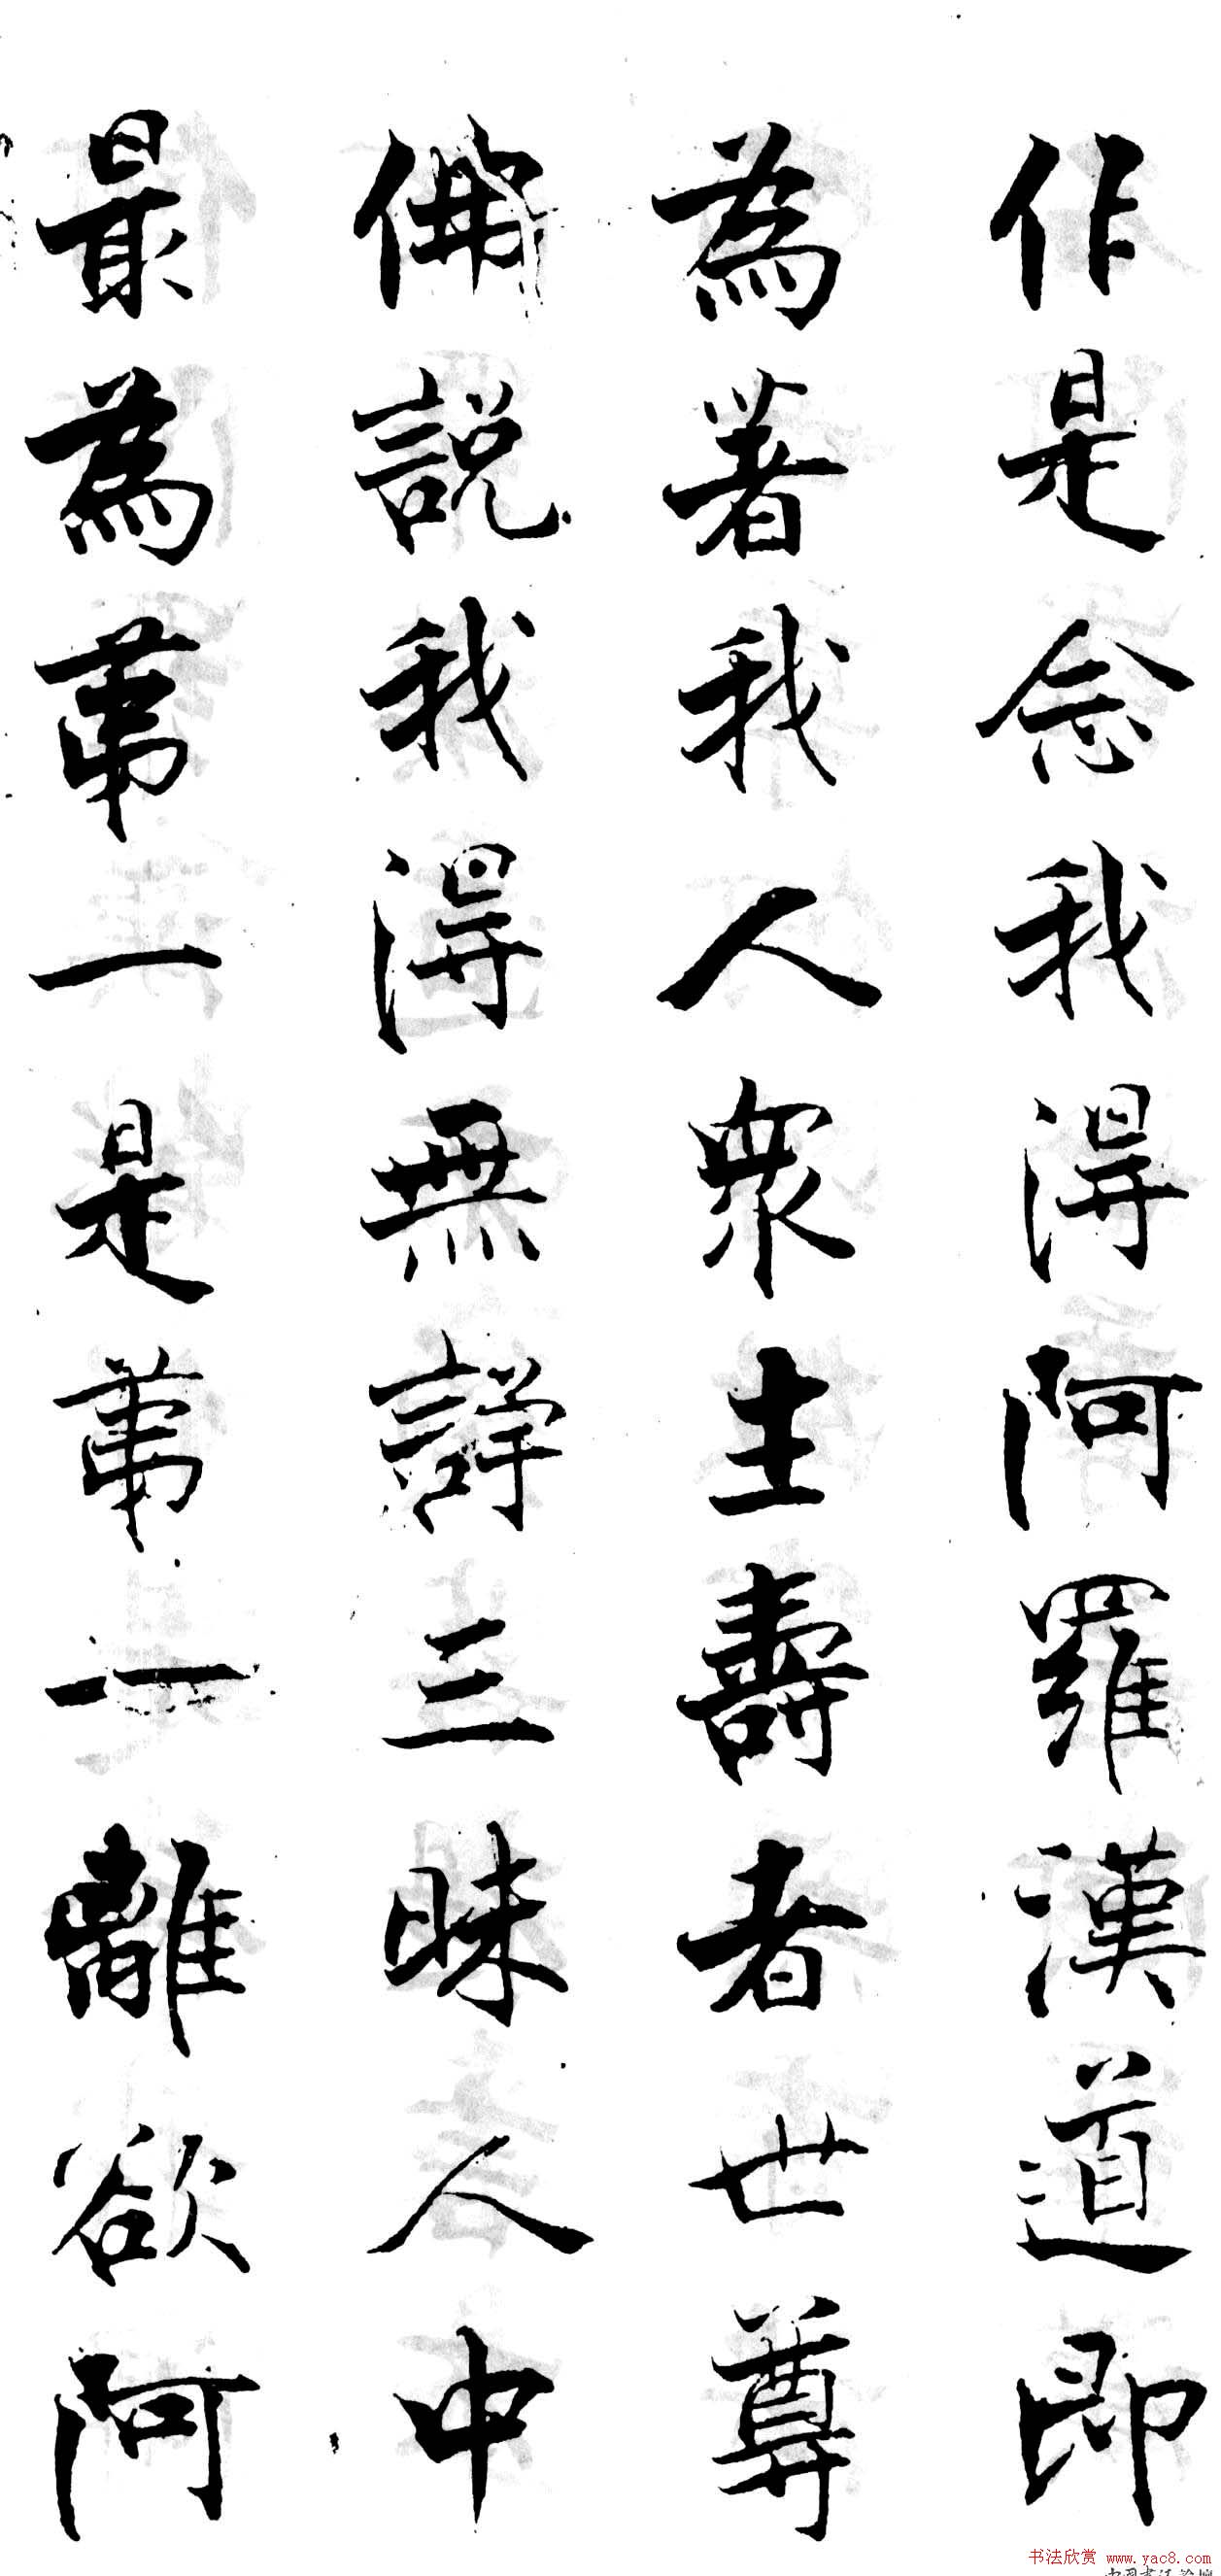 作是念我得阿羅漢道即
為著我人衆生壽者世尊
佛說我得無諍三昧人中
最為第一是第一離欲阿
书法欣赏 www.yac8.com